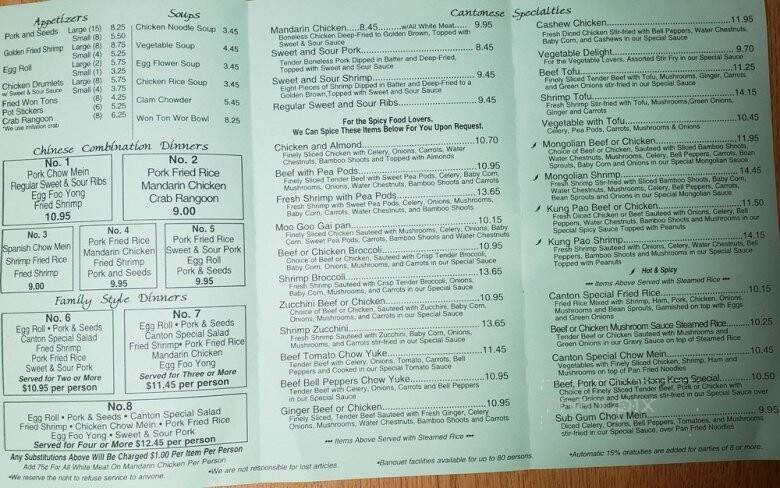 Appetizers
Pork and Seeds Large (15) 8.25
Small (8) 5.50
Golden Fried Shrimp Large (8) 8.75
Small (4) 5.25
Egg Roll Large (2) 5.75
Small (1) 3.25
Chicken Drumlets Large (8) 5.75
w/ Sweet & Sour Sauce Small (4) 3.75
Fried Won Tons (8) 4.25
Pot Stickers (6) 5.25
Crab Rangoon (8) 6.25
*We use imitation crab
Soups
Chicken Noodle Soup 3.45
Vegetable Soup 4.45
Egg Flower Soup 3.45
Chicken Rice Soup 3.45
Clam Chowder 5.45
Won Ton Wor Bowl 8.25
Chinese Combination Dinners
No. 1
Pork Chow Mein
Regular Sweet & Sour Ribs
Egg Foo Yong
Fried Shrimp
10.95
No. 2
Pork Fried Rice
Mandarin Chicken
Crab Rangoon
9.00
No. 3
Spanish Chow Mein
Shrimp Fried Rice
Fried Shrimp
9.00
No. 4
Pork Fried Rice
Mandarin Chicken
Fried Shrimp
Pork and Seeds
9.95
No. 5
Pork Fried Rice
Sweet & Sour Pork
Egg Roll
Pork & Seeds
9.95
Family Style Dinners
No. 6
Egg Roll • Pork & Seeds
Canton Special Salad
Fried Shrimp
Pork Fried Rice
Sweet & Sour Pork
Served for Two or More
$10.95 per person
No. 7
Egg Roll • Pork & Seeds
Canton Special Salad
Fried Shrimp• Pork Fried Rice
Mandarin Chicken
Egg Foo Yong
Served for Three or More
$11.45 per person
No.8
Egg Roll • Pork & Seeds • Canton Special Salad
Fried Shrimp • Chicken Chow Mein • Pork Fried Rice
Egg Foo Yong • Sweet & Sour Pork
Served for Four or More $12.45 per person
Any Substitutions Above Will Be Charged $1.00 Per Item Per Person
Add 75¢ For All White Meat On Mandarin Chicken Per Person
•We reserve the right to refuse service to anyone.
•We are not responsible for lost articles.
Cantonese Specialties
Mandarin Chicken.....8.45..........w/All White Meat..... 9.95
Boneless Chicken Deep-Fried to Golden Brown, Topped with
Sweet & Sour Sauce
Sweet and Sour Pork..........8.45
Tender Boneless Pork Dipped in Batter and Deep-Fried,
Topped with Sweet and Sour Sauce
Sweet and Sour Shrimp..........9.45
Eight Pieces of Shrimp Dipped in Batter and Deep-Fried to a
Golden Brown,Topped with Sweet and Sour Sauce
Regular Sweet and Sour Ribs..........9.45
For the Spicy Food Lovers,
We Can Spice These Items Below For You Upon Request.
Chicken and Almond..........10.70
Finely Sliced Chicken with Celery, Onions, Carrots, Water
Chestnuts, Bamboo Shoots and Topped with Almonds
Beef with Pea Pods..........10.95
Finely Sliced Tender Beef with Sweet Pea Pods, Celery, Baby Corn,
Mushrooms, Onions, Water Chestnuts, Bamboo Shoots and Carrots
Fresh Shrimp with Pea Pods..........13.65
Fresh Shrimp with Sweet Pea Pods, Celery, Onions, Mushrooms,
Baby Corn, Carrots, Water Chestnuts, and Bamboo Shoots
Moo Goo Gai pan..........10.15
Finely Sliced Chicken Sauteed with Mushrooms, Celery, Onions, Baby
Corn, Sweet Pea Pods, Carrots, Bamboo Shoots and Water Chestnuts
Beef or Chicken Broccoli..........10.95
Choice of Beef or Chicken, Sauteed with Crisp Tender Broccoli,
Baby Corn, Onions, Mushrooms, and Carrots in our Special Sauce
Shrimp Broccoli..........13.65
Fresh Shrimp Sauteed with Crisp Tender Broccoli, Onions,
Mushrooms, Baby Corn, and Carrots in our Special Sauce
Zucchini Beef or Chicken..........10.95
Choice of Beef or Chicken, Sauteed with Zucchini, Baby Corn,
Onions, Mushrooms, and Carrots in our Special Sauce
Shrimp Zucchini..........13.65
Fresh Shrimp Sauteed with Zucchini, Baby Corn, Onions,
Mushrooms, and Carrots stir-fried in our Special Sauce
Beef Tomato Chow Yuke..........11.45
Tender Beef with Celery, Onions, Tomato, Carrots, Bell
Peppers and Cooked in our Special Tomato Sauce
Beef Bell Peppers Chow Yuke..........10.95
Tender Beef with Celery, Onions, Carrots and Bell Peppers
in our Special Sauce
Ginger Beef or Chicken..........10.95
Finely Sliced, Tender Beef Sauteed with Fresh Ginger, Celery
Onions, Mushrooms, Water Chestnuts, Bamboo Shoots and Carrots
--- Items Above Served with Steamed Rice ---
•Banquet facilities available for up to 80 persons.
Cashew Chicken..........11.95
Fresh Diced Chicken Stir-fried with Bell Peppers, Water Chestnuts,
Baby Corn, and Cashews in our Special Sauce
Vegetable Delight..........9.70
For the Vegetable Lovers, Assorted Stir Fry in our Special Sauce
Beef Tofu..........11.25
Finely Sliced Tender Beef with Tofu, Mushrooms, Ginger, Carrots
and Green Onions stir-fried in our Special Sauce
Shrimp Tofu..........14.15
Fresh Shrimp Stir-fried with Tofu, Mushrooms,Green Onions,
Ginger and Carrots
Vegetable with Tofu..........10.45
Celery, Pea Pods, Carrots, Mushrooms & Onions
Mongolian Beef or Chicken..........11.95
Choice of Beef or Chicken, Sauteed with Sliced Bamboo Shoots,
Water Chestnuts, Mushrooms, Celery, Bell Peppers, Carrots, Bean
Sprouts, Baby Corn and Onions in our Special Mongolian Sauce
Mongolian Shrimp..........14.45
Fresh Shrimp Stir-fried with Sliced Bamboo Shoots, Baby Corn,
Water Chestnuts, Mushrooms, Celery, Bell Peppers, Carrots,
Bean Sprouts and Onions in our Special Mongolian Sauce
Kung Pao Beef or Chicken..........11.50
Fresh Diced Chicken or Beef Sauteed with Onions, Celery, Bell
Peppers, Water Chestnuts, Bamboo Shoots and Mushrooms in our
Special Spicy Sauce Topped with Peanuts
Kung Pao Shrimp..........14.15
Fresh Shrimp Sauteed with Onions, Celery, Water Chestnuts, Bell
Peppers, Bamboo Shoots and Mushrooms in our Special Sauce
Topped with Peanuts
Hot & Spicy
--- Items Above Served with Steamed Rice ---
Canton Special Fried Rice..........10.15
Fried Rice Mixed with Shrimp, Ham, Pork, Chicken, Onions,
Mushrooms and Bean Sprouts, Garnished on top with Eggs
and Green Onions
Beef or Chicken Mushroom Sauce Steamed Rice..........10.25
Tender Beef or Chicken Sauteed with Mushrooms and
Green Onions in our Gravy Sauce on top of Steamed Rice
Canton Special Chow Mein..........10.45
Vegetables with Finely Sliced Chicken, Shrimp, Ham and
Mushrooms on top of Pan Fried Noodles
Beef, Pork or Chicken Hong Kong Special..........10.50
Choice of Finely Sliced Tender Beef, Pork or Chicken with
Green Onions and Mushrooms stir-fried in our Special Sauce over
Pan Fried Noodles
Sub Gum Chow Mein..........9.95
Diced Celery, Onions, Bell Peppers, Tomatoes, and Mushrooms
stir-fried in our Special Sauce, over Pan Fried Noodles
•Automatic 15% gratuities are added for parties of 6 or more.